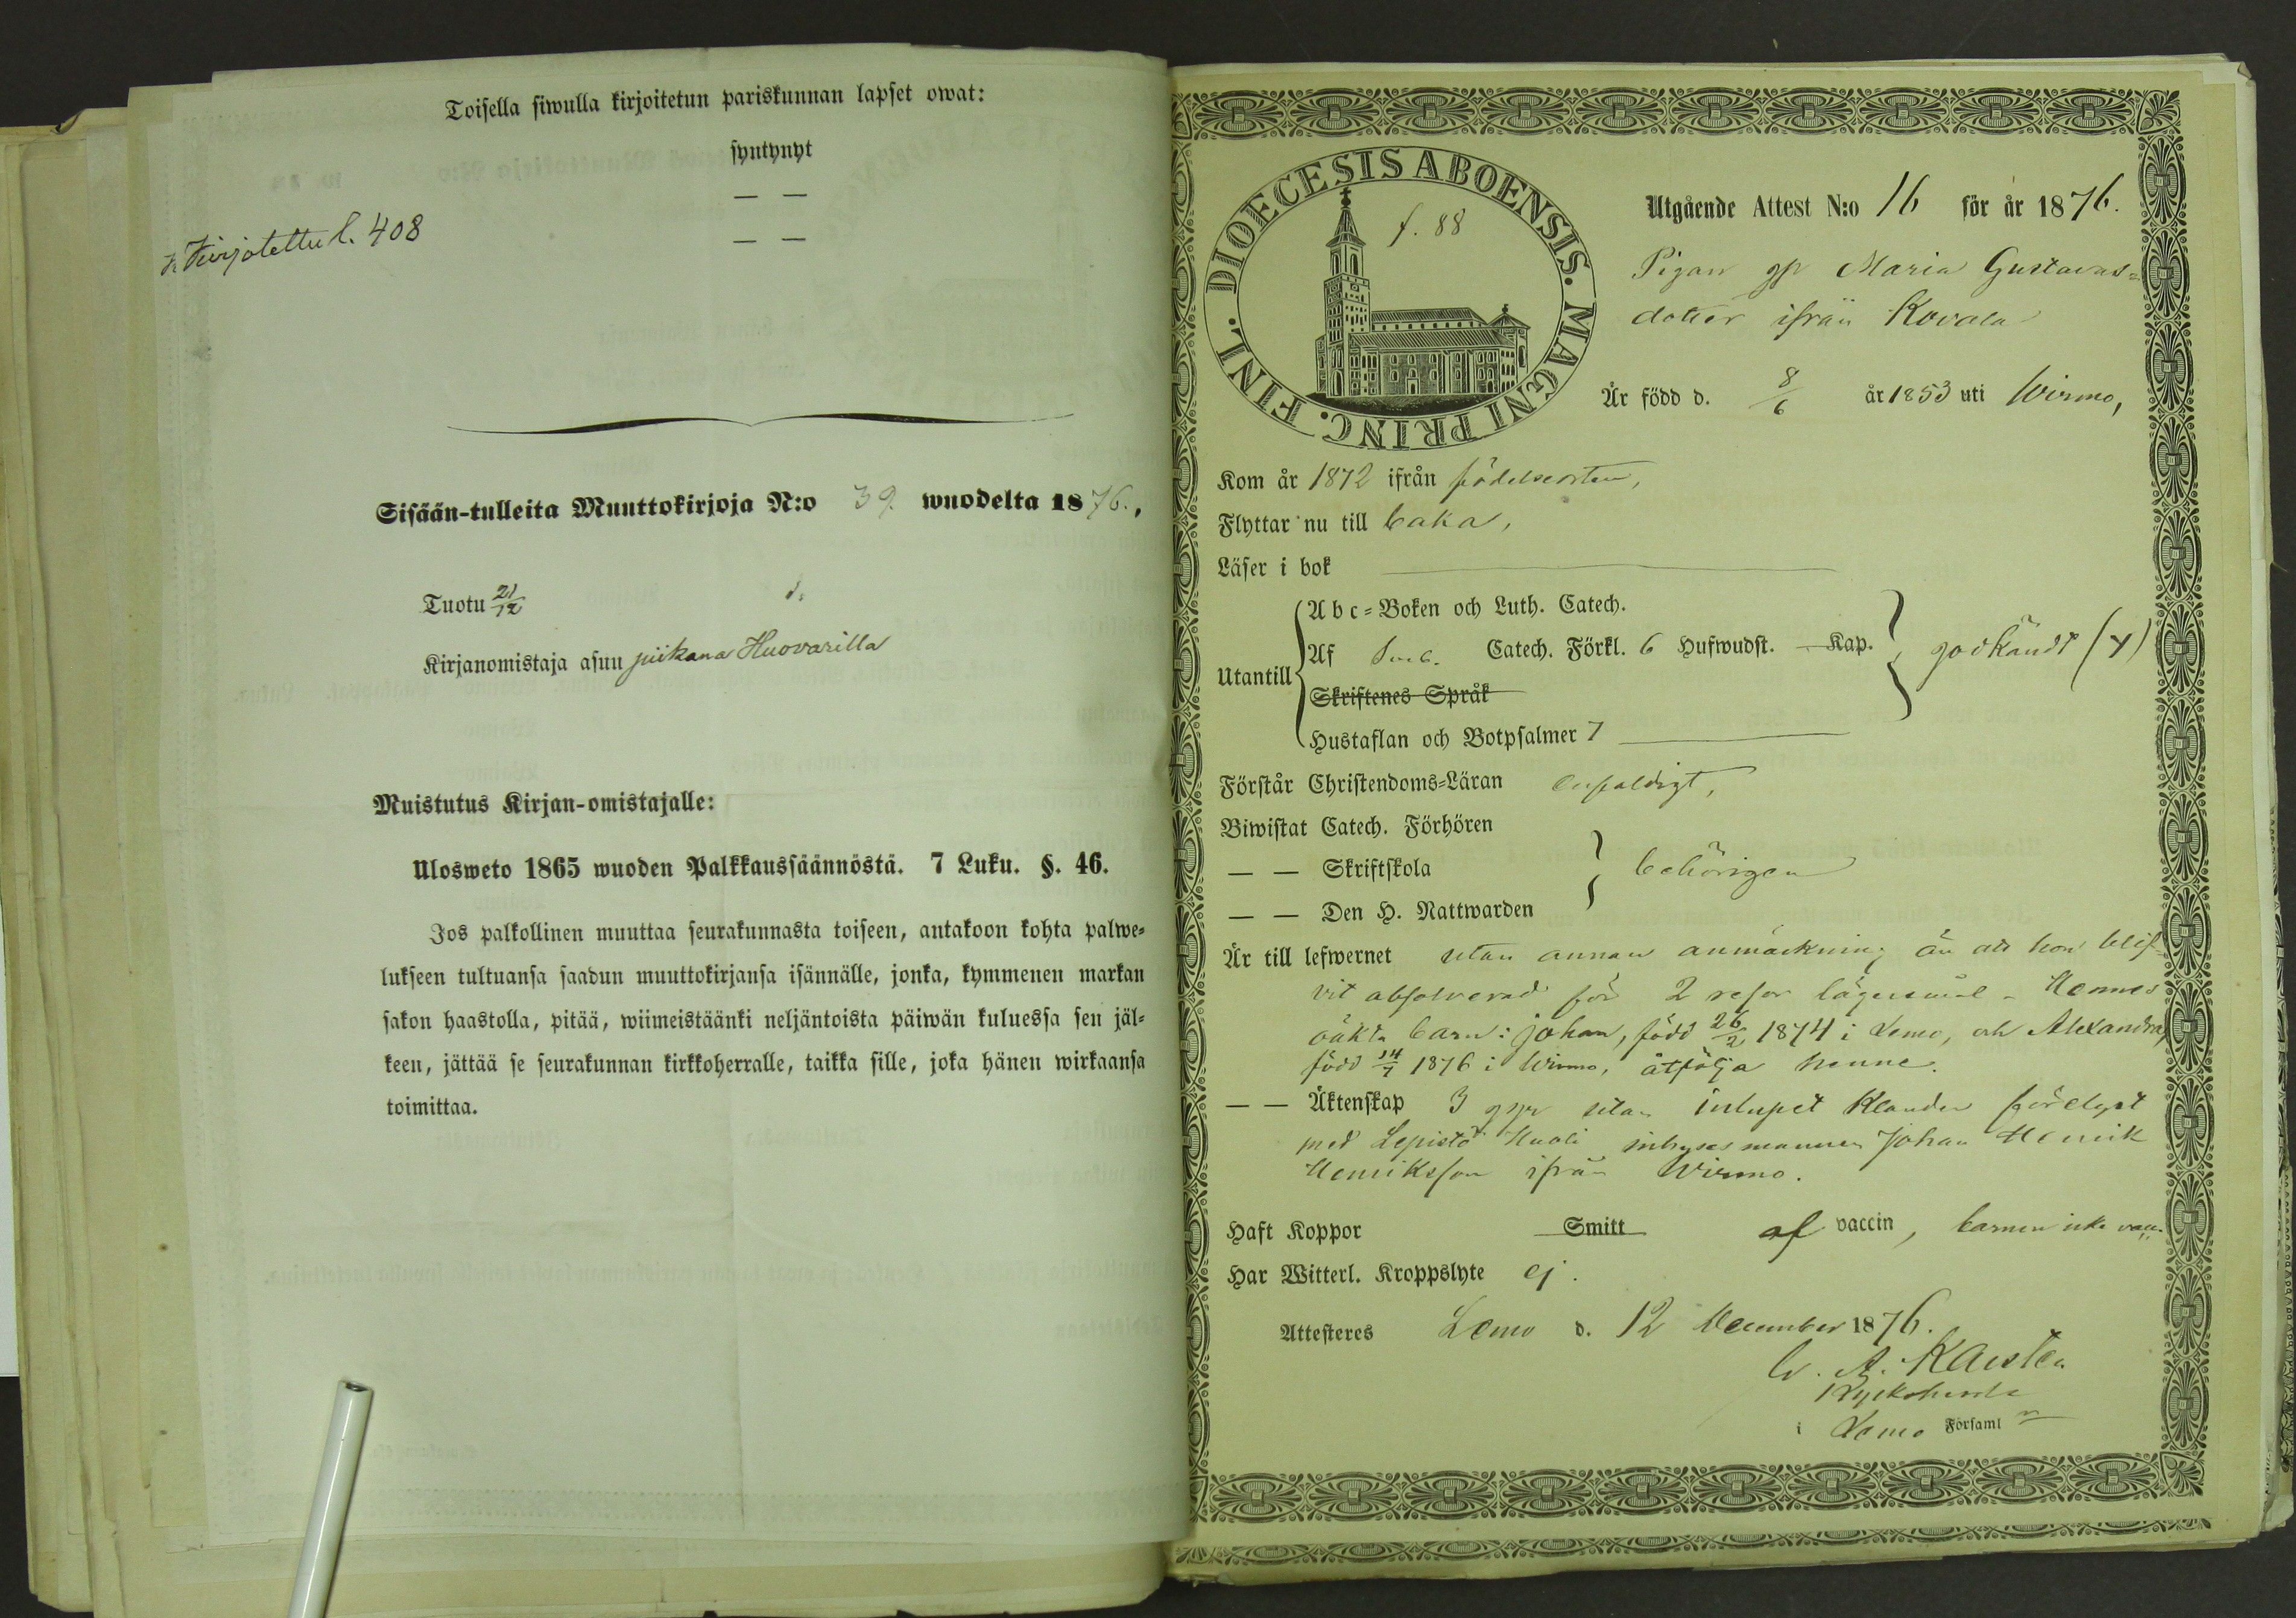 Toisella siwulla kirjoitetun pariskunnan lapset owat:
syntynyt
— —
— —
Kirjotettu l. 408
Sisään-tulleita Muuttokirjoja N:o 39. wuodelta 1876.
Tuotu 21/12
Kirjanomistaja asuu piikana Huovarilla
Muistutus Kirjan-omistajalle:
Ulosweto 1865 wuoden Palkkaussäännöstä. 7 Luku. §. 46.
Jos palkollinen muuttaa seurakunnasta toiseen, antakoon kohta palwe-
lukseen tultuansa saadun muuttokirjansa isännälle, jonka, kymmenen markan
sakon haastolla, pitää, wiimeistäänki neljäntoista päiwän kuluessa sen jäl-
keen, jättää se seurakunnan kirkkoherralle, taikka sille, joka hänen wirkaansa
toimittaa.
DIOECESIS ABOENSIS. MAGNI PRINC. FINL.
f. 88
Utgående Attest N:o 16 för år 1876.
Pigan Maria Gustavas-
dotter ifrån Kovala
Är född d. 8/6 år 1853 uti Wirmo,
Kom år 1872 ifrån födelseorten,
Flyttar nu till baka,
Läser i bok
Utantill
Abc-Boken och Luth. Catech.
Af Catech. Förkl. 6 Hufwudst. — Kap. godkändt (4)
Skriftenes Språk
Hustaflan och Botpsalmer 7
Förstår Christendoms-Läran enfaldigt,
Biwistat Catech. Förhören
— — Skriftskola behörigen
— — Den H. Nattwarden
Är till lefwernet utan annan anmärkning än att hon blif-
vit absolverad för 2 resor lägersmål - Hennes
oäkta barn: Johan, född 26/2 1874 i Lemo, och Alexandra,
född 14/7 1876 i Wirmo, åtfölja henne.
— — Äktenskap 3 ggr utan inlupet klander förelyst
med Lepistö Huoli inhysesmannen Johan Henrik
Henriksson ifrån Wirmo.
Haft Koppor Smitt af vaccin, barnen icke vacc.
Har Witterl. Kroppslyte ej.
Attesteres Lemo d. 12 December 1876.
A. Karsten
Kyrkoherde
i Lemo Församl